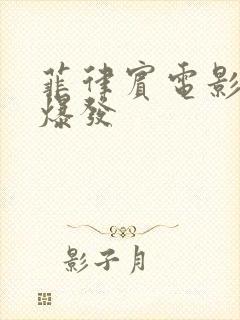 菲律賓電影
爆發
影子月